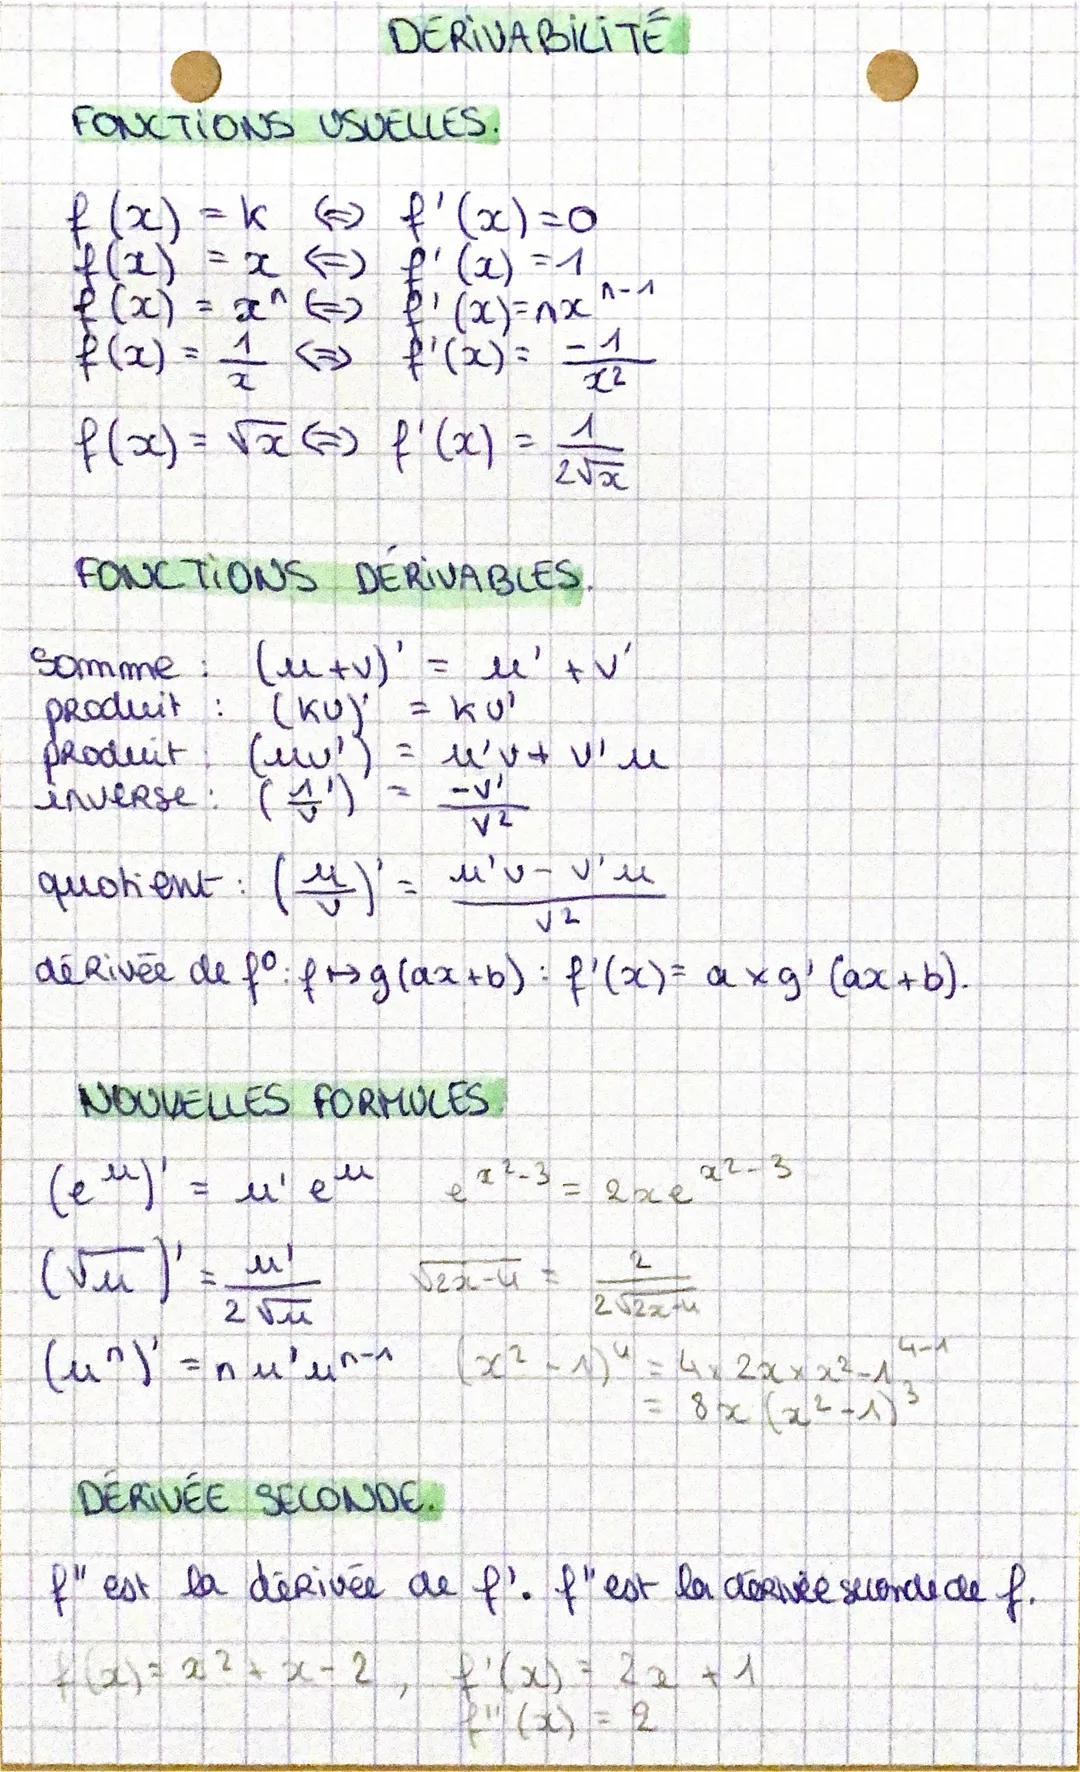 DÉRIVABILITÉ
FONCTIONS USUELLES.
f(x) = k <=> f'(x)=0
f(x) = x <=> f'(x)=1
f(x) = x^n <=> f'(x)=nx^(n-1)
f(x) = 1/x <=> f'(x)= -1/x²
f(x) = √x <=> f'(x) = 1/(2√x)
FONCTIONS DÉRIVABLES.
somme : (u+v)' = u' + v'
produit : (kv)' = kv'
produit : (uv') = u'v + v'u
inverse : (1/v')' = -v'/v²
quotient : (u/v)' = (u'v - v'u)/v²
dérivée de f°: f↦g(ax+b) : f'(x)= a×g'(ax+b).
NOUVELLES FORMULES
(e^u)' = u'e^u e^(x²-3) = 2xe^(x²-3)
(√u)' = u'/(2√u) √(2x-4) = 2/(2√(2x-4))
(u^n)' = n u'u^(n-1) (x²-1)^4 = 4×2x×x²-1^(4-1)
= 8x(x²-1)³
DÉRIVÉE SECONDE.
f" est la dérivée de f'. f" est la dérivée seconde de f.
f(x)= x²+x-2, f'(x) = 2x+1
f"(x) = 2